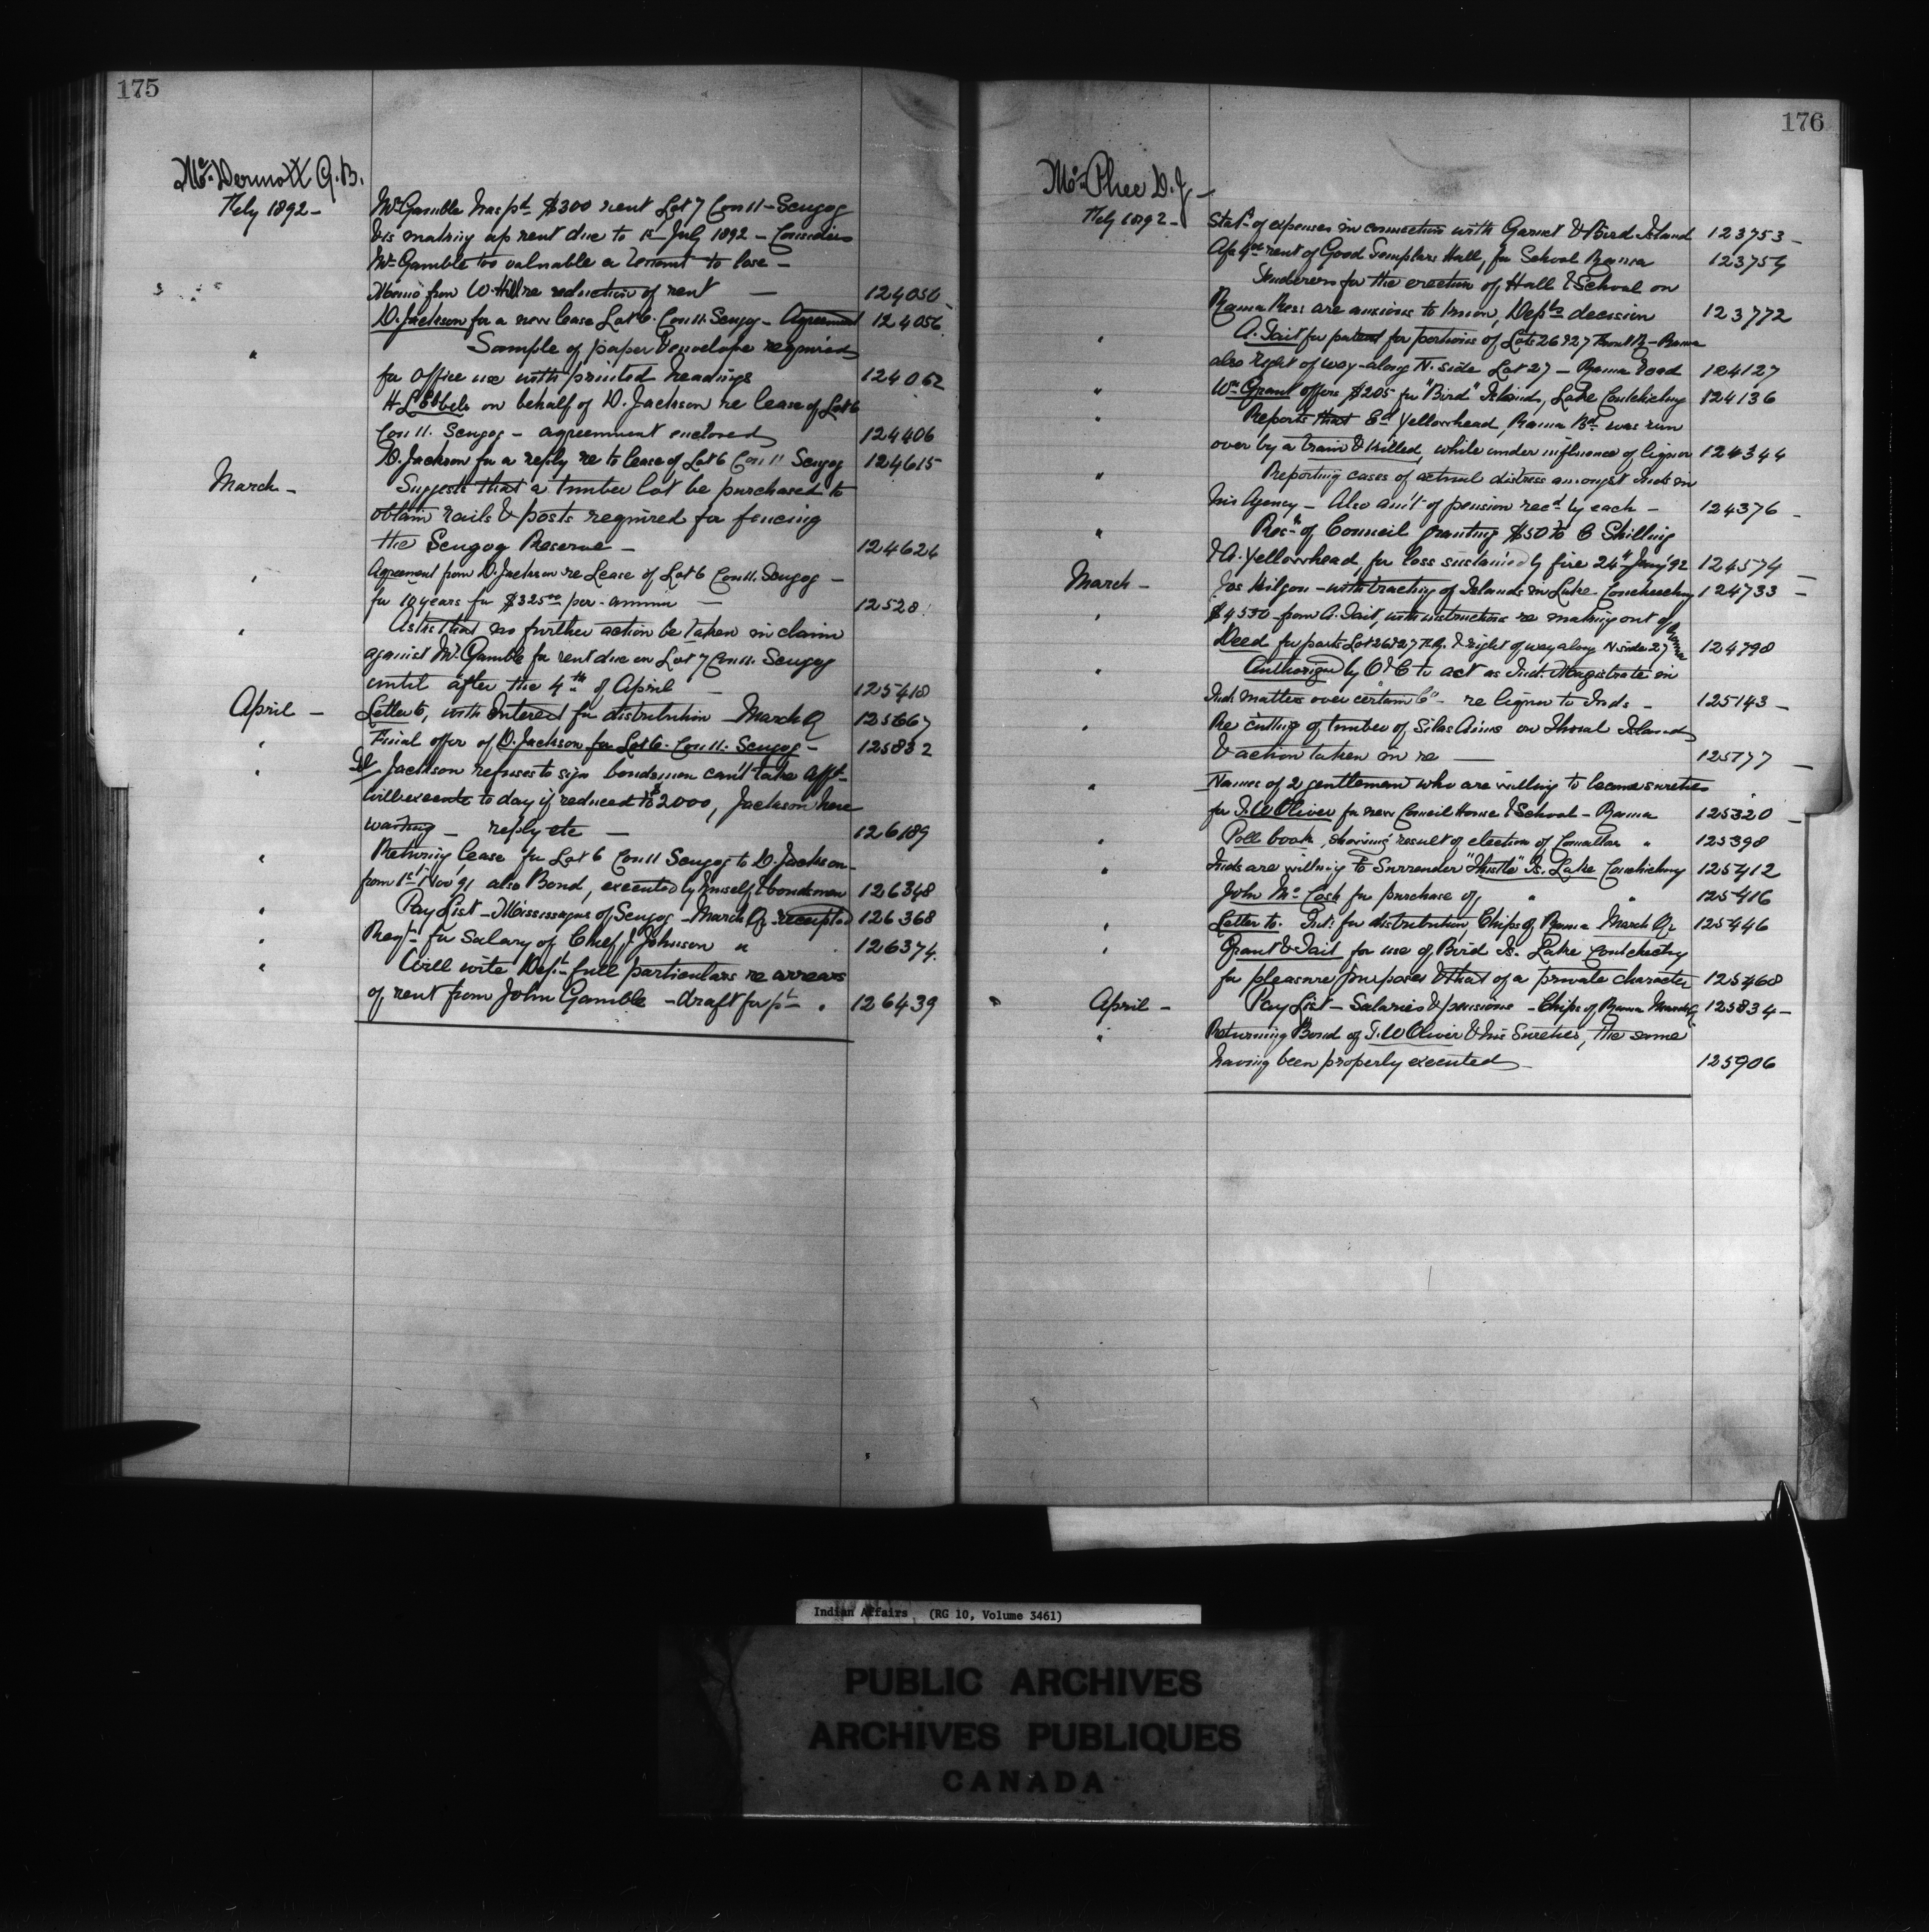 175
Mc Dermott G. B.
Feby 1892 -
Mr Gamble has pd $300 rent Lot 7 Con 11 - Scugog
& is making up rent due to 1st July 1892 - Considers
Mr Gamble too valuable a tenant to lose -
Memo from W. Hill re reduction of rent — 124050
D. Jackson for a new lease Lot 6. Con 11. Scugog - Agreement 124056
" Sample of paper & envelope required
for office use with printed headings 124062
H L Ebbels on behalf of D. Jackson re lease of Lot 6
Con 11. Scugog - agreement enclosed 124406
D. Jackson for a reply re to lease of Lot 6 Con 11 Scugog 124615
March - Suggests that a timber lot be purchased to
obtain rails & posts required for fencing
the Scugog Reserve - 124624
" Agreement from D. Jackson re Lease of Lot 6 Con 11. Scugog -
for 10 years for $325.00 per annum — 12528
" Asks that no further action be taken in claim
against Mr Gamble for rent due on Lot 7 Con 11. Scugog
until after the 4th of April — 125418
April - Letter to, with Interest for distribution March Q 125667
" Final offer of D. Jackson for Lot 6. Con 11. Scugog - 125832
" Jackson refuses to sign bondsmen can't take afft -
will execute to day if reduced to $2000, Jackson here
waiting - reply etc — 126189
" Returning lease for Lot 6 Con 11 Scugog to D. Jackson -
from 1st Nov 91 also Bond, executed by himself & bondsmen 126348
" Pay List - Mississaguas of Scugog - March Qr receipted 126368
" Reqt for Salary of Chief J. Johnson " 126374
" Will write Dept full particulars re arrears
of rent from John Gamble - draft for pt . 126439
176
Mc Phee D. J -
Feby 1892 -
Statt of expenses in connection with Garnet & Bird Island 123753 -
rent of Good Templars Hall, for School Rama 123754
Tenderers for the erection of Hall & School on
Rama Res are anxious to know, Depts decision 123772
" A. Tait for patent for portions of Lots 26 & 27 Front R - Rama
also right of way along N. side Lot 27 - Rama Road 124127
" Wm Grant offers $205 for "Bird" Island, Lake Couchiching 124136
" Reports that Ed Yellowhead, Rama Bd was run
over by a train & killed, while under influence of liquor 124344
" Reporting cases of actual distress amongst Inds in
his Agency - Also am't of pension recd by each - 124376 -
" Resn of Council granting $50 to B Shilling
& A. Yellowhead, for loss sustained by fire 24th Jany '92 124574 -
March - Jos Wilson - with tracing of Islands in Lake Couchiching 124733 -
" $4530 from A. Tait, with instructions re making out of
Deed for parts Lot 26 & 27 & right of way along N side 27 Rama 124798
" Authorized by O & C to act as Indt. Magistrate in
Ind. matters over certain Cos re liquor to Inds - 125143 -
" Re cutting of timber of Silas Aims on Island
& action taken in re — 125177 -
" Names of 2 gentlemen who are willing to become sureties
for J. W Oliver for new Council House & School - Rama 125320 -
" Poll book, showing result of election of Councillors " 125398
" Inds are willing to Surrender "Thistle" Is. Lake Couchiching 125412
John Mc Cosh for purchase of " " 125416
" Letter to. Int. for distribution Chips of Rama March Qr 125446
" Grant & Tait for use of Bird Is. Lake Couchiching
for pleasure purposes & that of a private character 125468
" April - Pay List - Salaries & pensions - Chips of Rama March Q 125834 -
" Returning Bond of J. W Oliver & his Sureties, the same
having been properly executed 125906
Indian Affairs (RG 10, Volume 3461)
PUBLIC ARCHIVES
ARCHIVES PUBLIQUES
CANADA